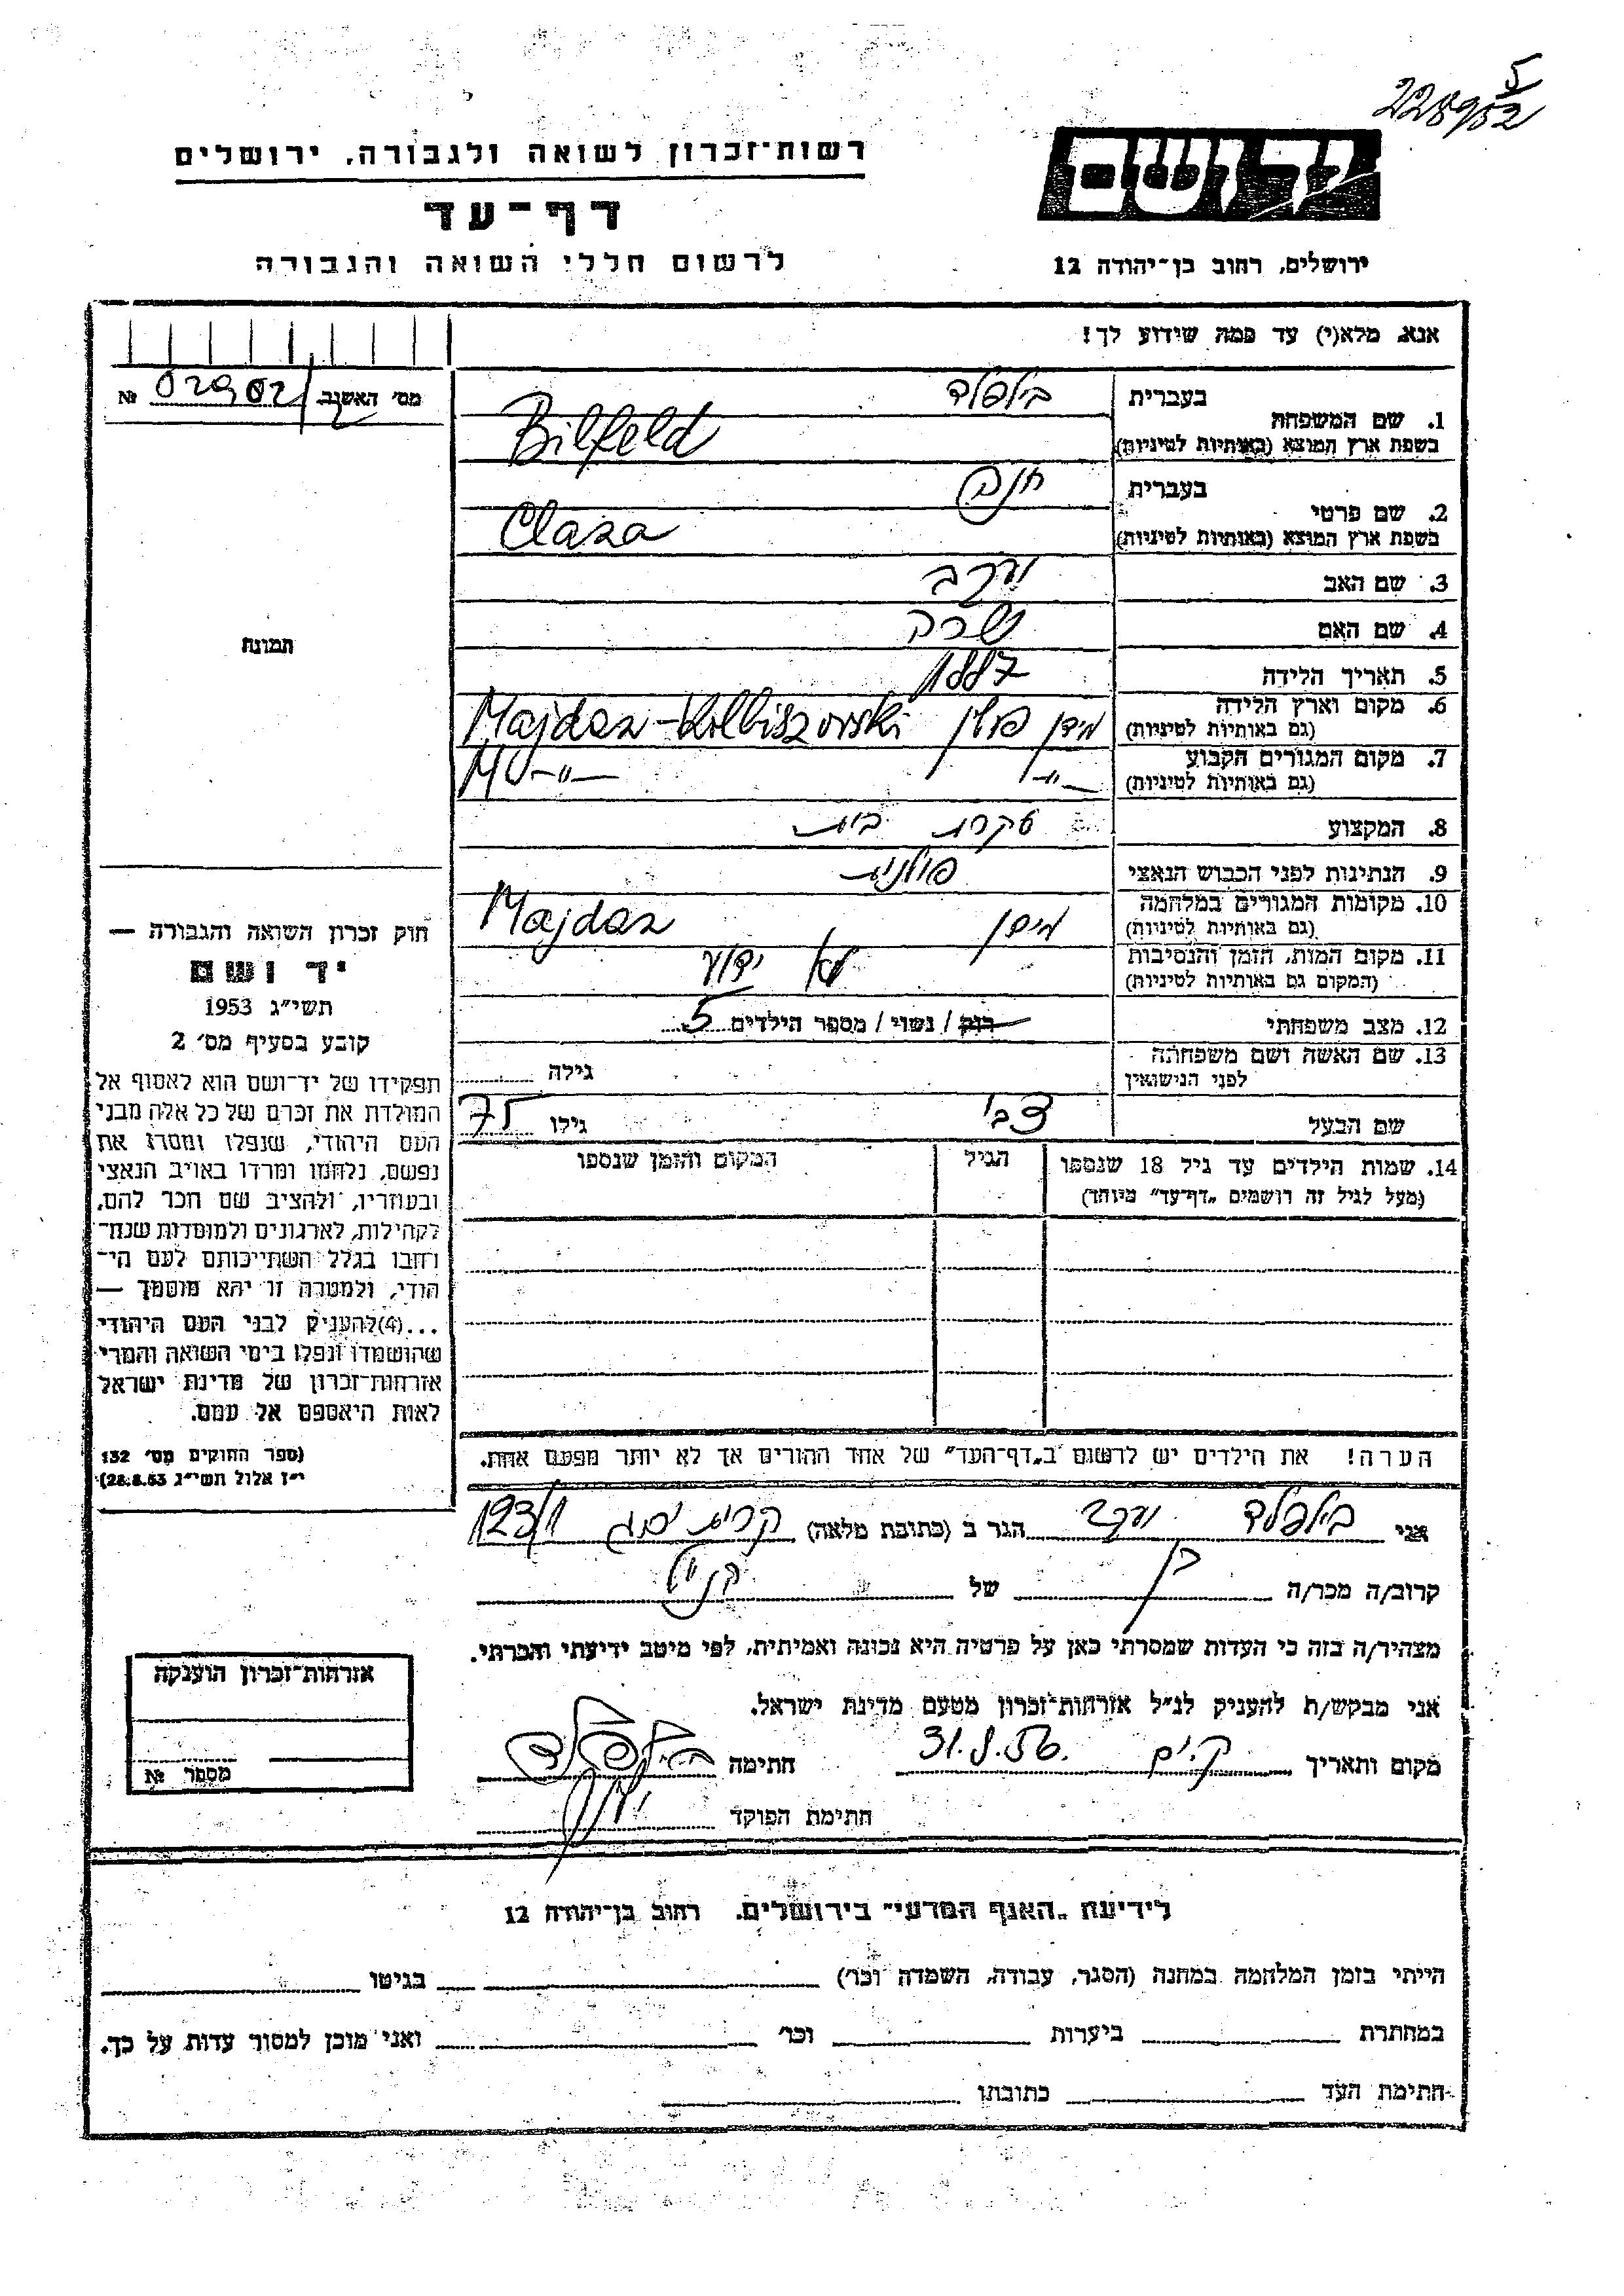 5
228952
ידושם
רשות־זכרון לשואה ולגבורה, ירושלים
דף־עד
לרשום חללי השואה והגבורה
ירושלים, רחוב בן־יהודה 12
אנא, מלא(י) עד כמה שידוע לך!
מס׳ האשנב № 02902
1. שם המשפחה בעברית בילפלד
בשפת ארץ המוצא (באותיות לטיניות) Bilfeld
2. שם פרטי בעברית חנה
בשפת ארץ המוצא (באותיות לטיניות) Clara
3. שם האב יעקב
4. שם האם שרה
5. תאריך הלידה 1887
6. מקום וארץ הלידה מידן פולין Majdan-Kolbiszowski
(גם באותיות לטיניות)
7. מקום המגורים הקבוע —״—
(גם באותיות לטיניות)
8. המקצוע עקרת בית
9. הנתינות לפני הכבוש הנאצי פולנית
10. מקומות המגורים במלחמה מידן Majdan
(גם באותיות לטיניות)
11. מקום המות, הזמן והנסיבות לא ידוע
(המקום גם באותיות לטיניות)
12. מצב משפחתי רוק / נשוי / מספר הילדים 5
13. שם האשה ושם משפחתה גילה
לפני הנישואין
שם הבעל צבי גילו 75
14. שמות הילדים עד גיל 18 שנספו הגיל המקום והזמן שנספו
(מעל לגיל זה רושמים „דף־עד״ מיוחד)
הערה! את הילדים יש לרשום ב„דף־העד״ של אחד ההורים אך לא יותר מפעם אחת.
תמונה
חוק זכרון השואה והגבורה —
יד ושם
תשי״ג 1953
קובע בסעיף מס׳ 2
תפקידו של יד־ושם הוא לאסוף אל
המולדת את זכרם של כל אלה מבני
העם היהודי, שנפלו ומסרו את
נפשם, נלחמו ומרדו באויב הנאצי
ובעוזריו, ולהציב שם וזכר להם,
לקהילות, לארגונים ולמוסדות שנח־
רחבו בגלל השתייכותם לעם הי־
הודי, ולמטרה זו יהא מוסמך —
...(4)להעניק לבני העם היהודי
שהושמדו ונפלו בימי השואה והמרי
אזרחות־זכרון של מדינת ישראל
לאות היאספם אל עמם.
(ספר החוקים מס׳ 132
י״ז אלול תשי״ג 28.8.53)
אני בילפלד יעקב הגר ב (כתובת מלאה) קרית ים ג 123/1
קרוב/ה מכר/ה בן של הנ״ל
מצהיר/ה בזה כי העדות שמסרתי כאן על פרטיה היא נכונה ואמיתית, לפי מיטב ידיעתי והכרתי.
אני מבקש/ת להעניק לנ״ל אזרחות־זכרון מטעם מדינת ישראל.
מקום ותאריך ק.ים 31.8.56. חתימה בילפלד
חתימת הפוקד
אזרחות־זכרון הוענקה
מספר №
לידיעת „האגף המדעי״ בירושלים. רחוב בן־יהודה 12
הייתי בזמן המלחמה במחנה (הסגר, עבודה, השמדה וכו׳) בגיטו
במחתרת ביערות וכו׳ ואני מוכן למסור עדות על כך.
חתימת העד כתובתו